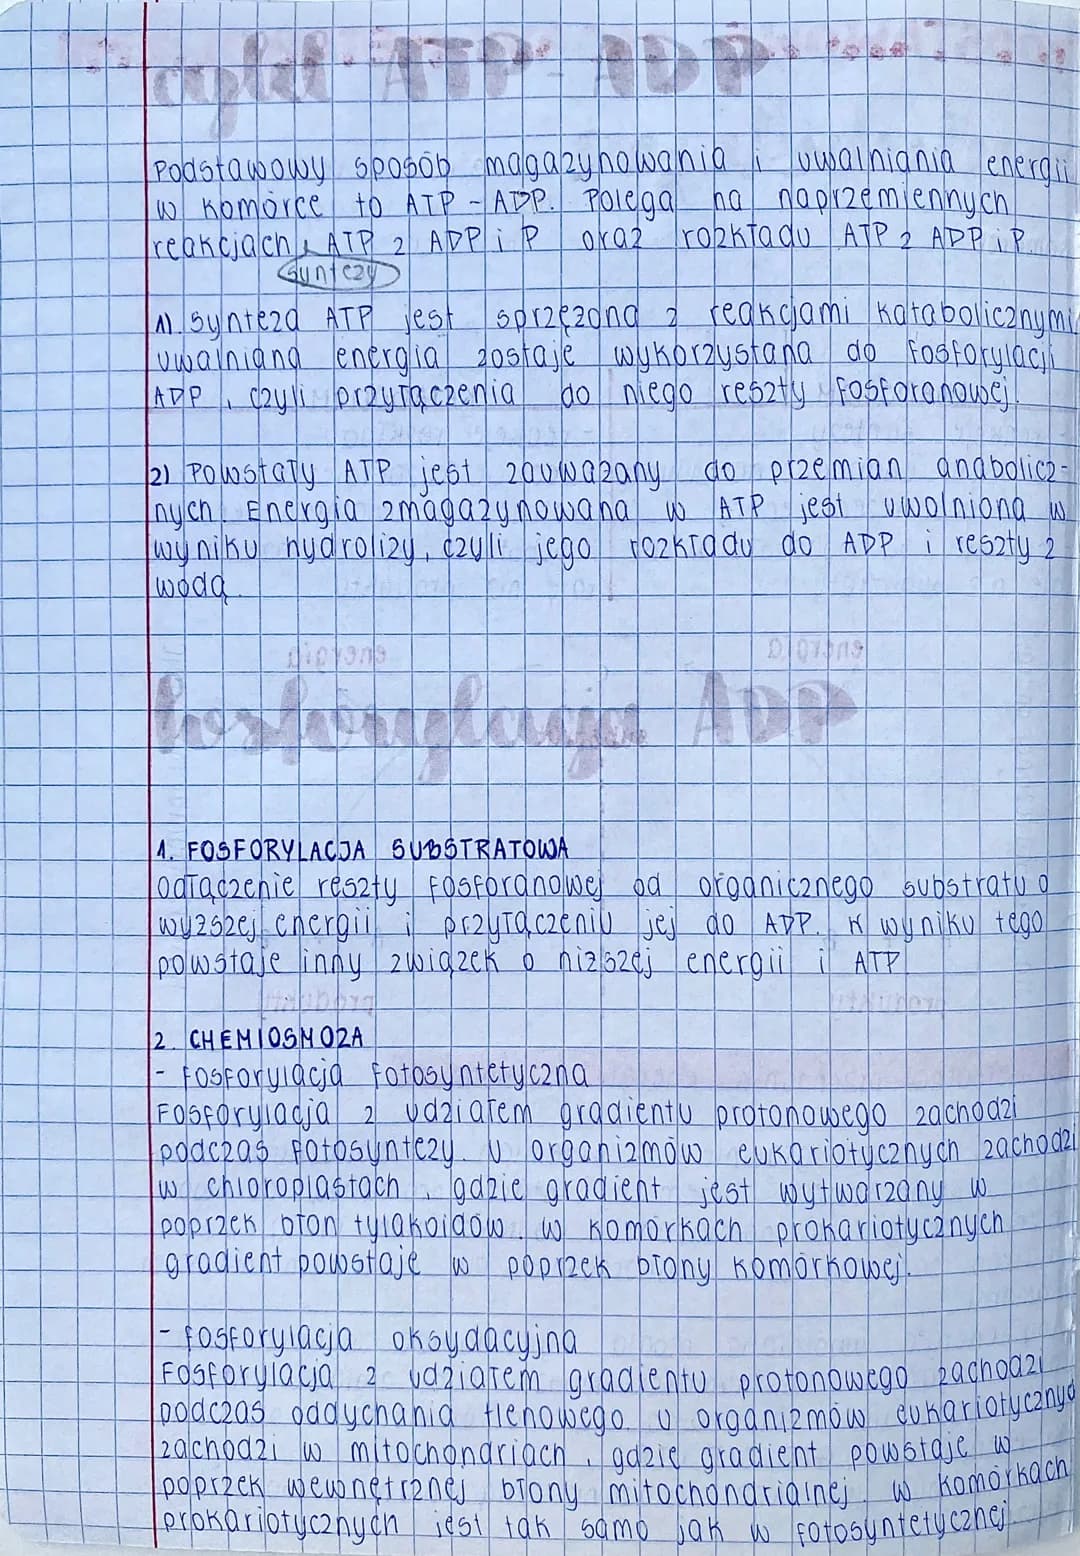 cykl ATP - ADP
Podstawowy sposób magazynowania i uwalniania energii
w komórce to ATP - ADP. Polega na naprzemiennych
reakcjach ATP z ADP i P oraz rozkładu ATP z ADP i P
syntezy
1) Synteza ATP jest sprzężona z reakcjami katabolicznymi
uwalniana energia zostaje wykorzystana do fosforylacji
ADP, czyli przyłączenia do niego reszty fosforanowej.
2) Powstały ATP jest zauważany do przemian anabolicz-
nych. Energia zmagazynowana w ATP jest uwolniona w
wyniku hydrolizy, czyli jego rozkładu do ADP i reszty z
wodą.
fosforylacja ADP
1. FOSFORYLACJA SUBSTRATOWA
odłączenie reszty fosforanowej od organicznego substratu o
wyższej energii i przyłączeniu jej do ADP. W wyniku tego
powstaje inny związek o niższej energii i ATP
2. CHEMIOSMOZA
- fosforylacja fotosyntetyczna
Fosforylacja z udziałem gradientu protonowego zachodzi
podczas fotosyntezy. U organizmów eukariotycznych zachodzi
w chloroplastach, gdzie gradient jest wytwarzany w
poprzek błon tylakoidów. w komórkach prokariotycznych
gradient powstaje w poprzek błony komórkowej.
- fosforylacja oksydacyjna
Fosforylacja z udziałem gradientu protonowego zachodzi
podczas oddychania tlenowego. U organizmów eukariotycznych
zachodzi w mitochondriach, gdzie gradient powstaje w
poprzek wewnętrznej błony mitochondrialnej. w komórkach
prokariotycznych jest tak samo jak w fotosyntetycznej